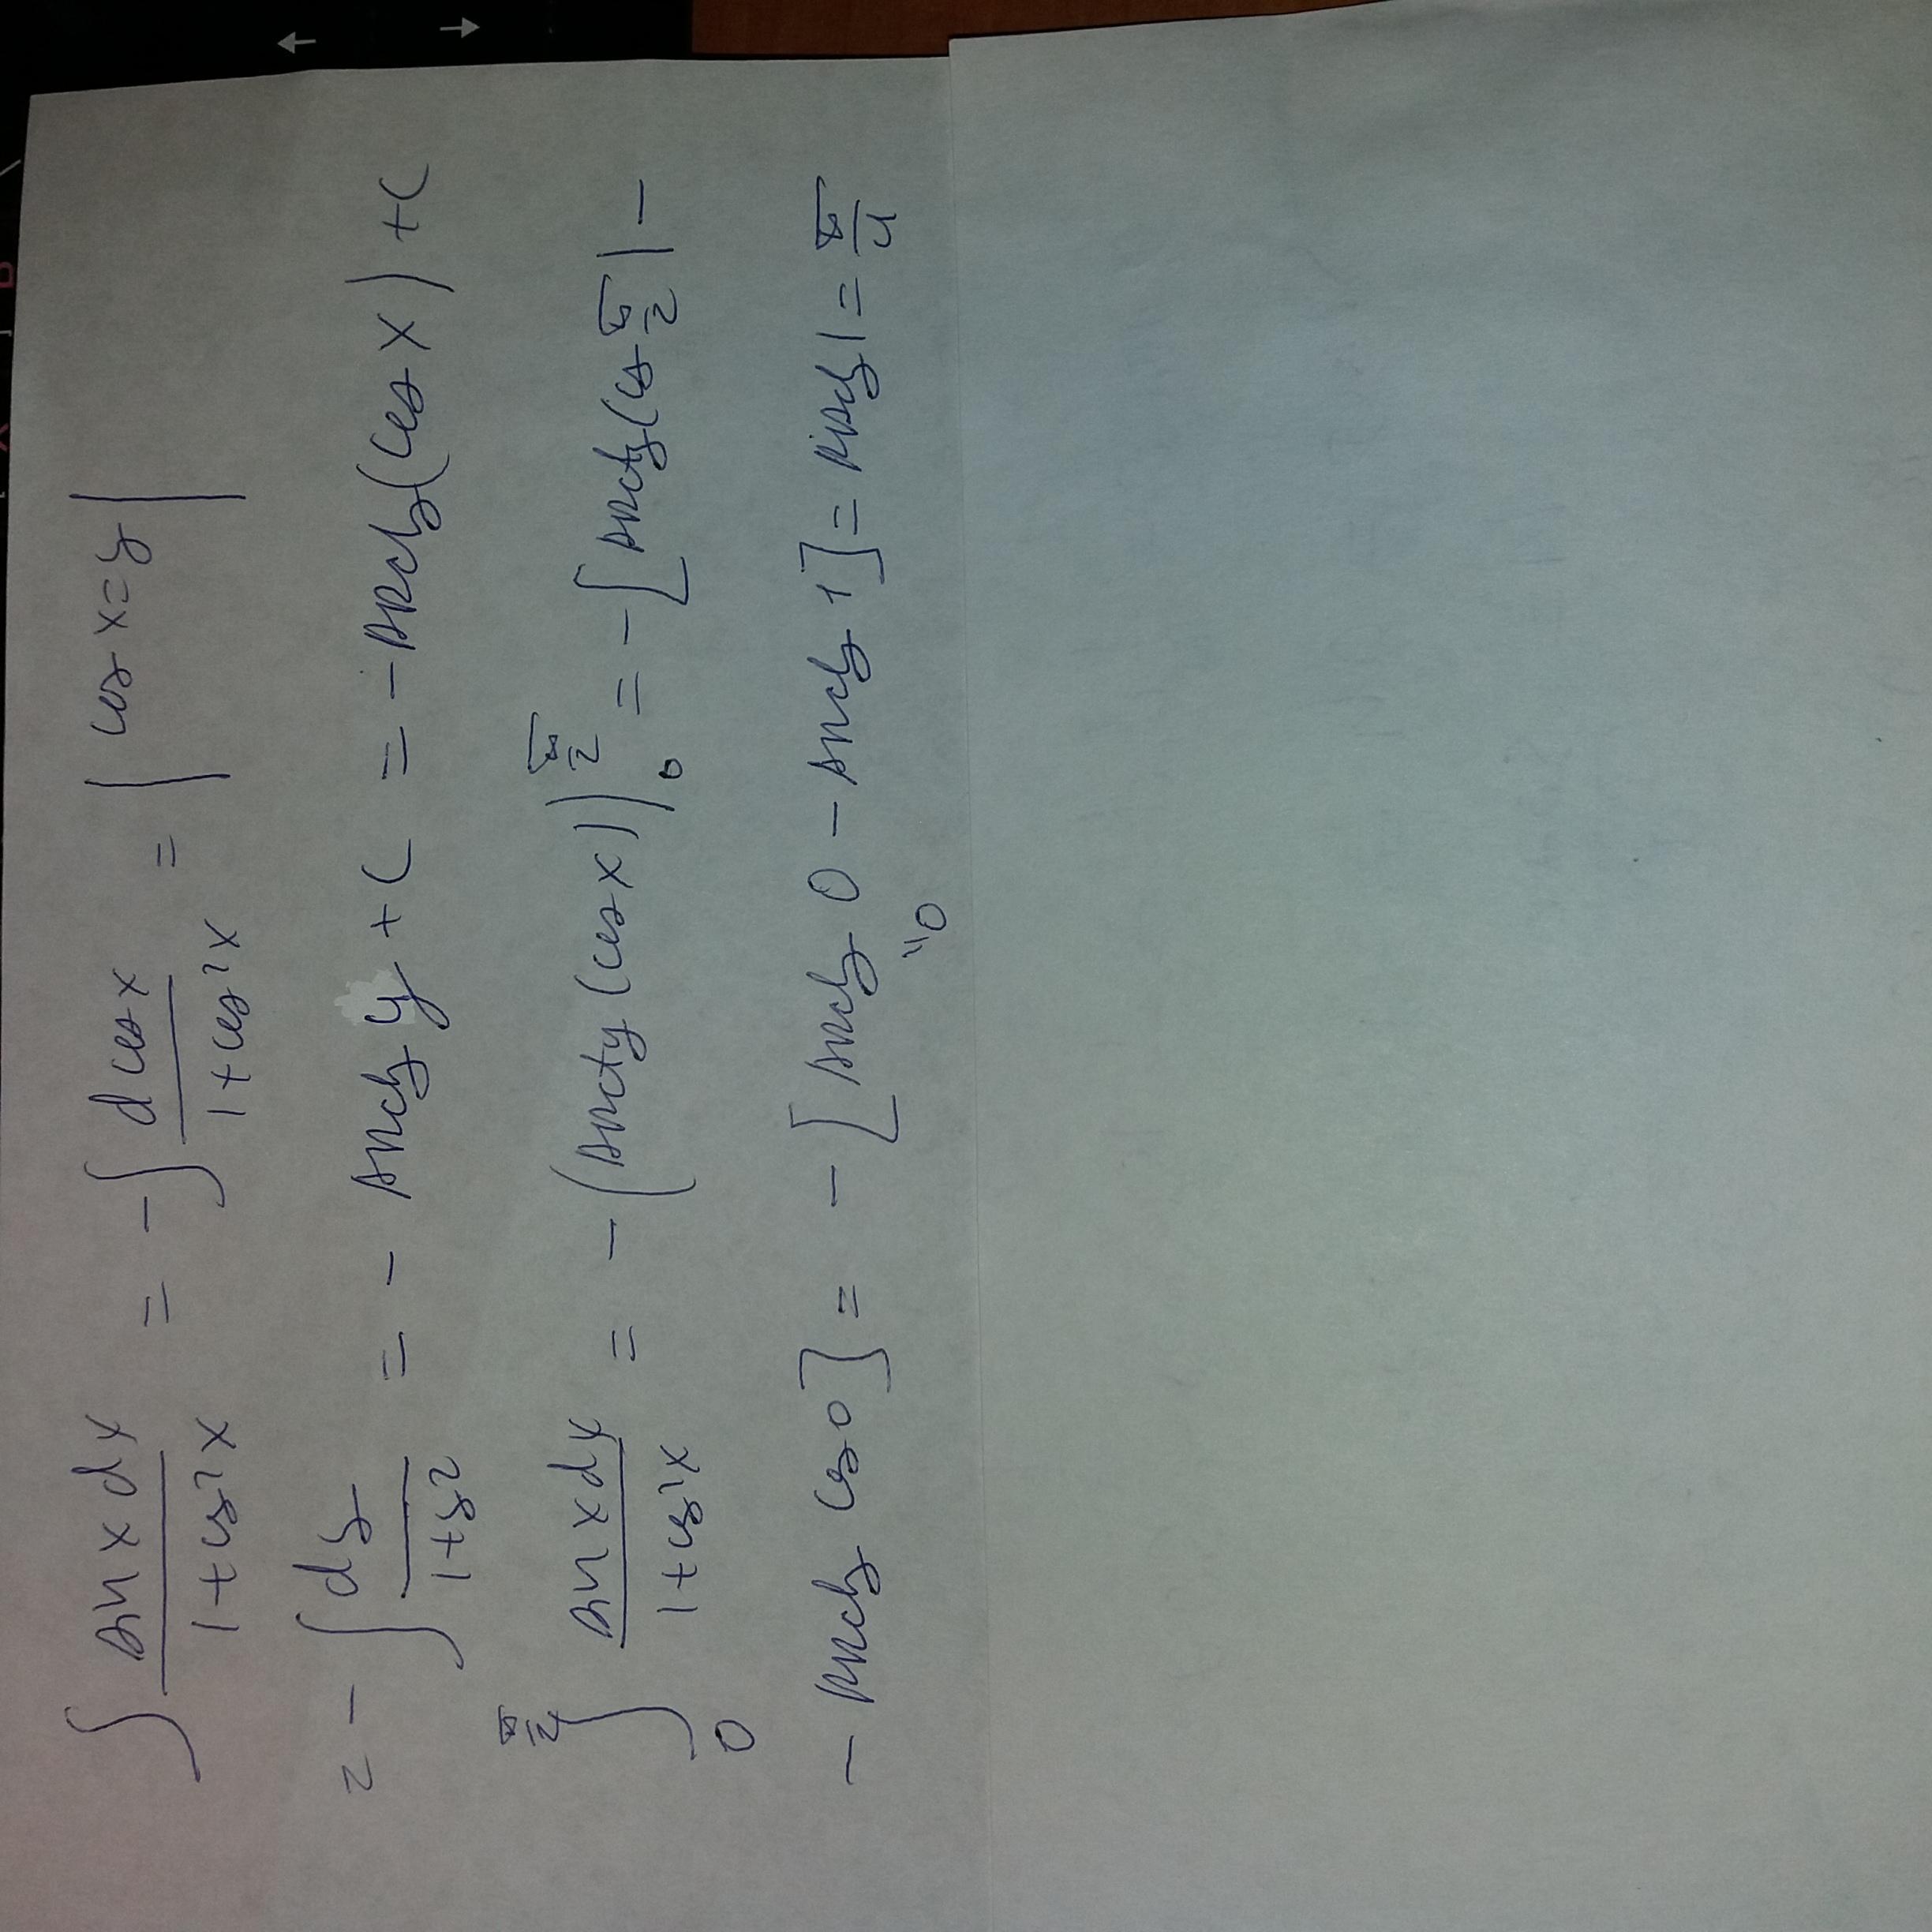 ∫ sin x dx / 1 + cos²x = - ∫ d cos x / 1 + cos²x = | cos x = y |
= - ∫ dy / 1 + y² = - arctg y + C = - arctg (cos x) + C
∫₀^{π/2} sin x dx / 1 + cos²x = - (arctg (cos x)) |₀^{π/2} = - [ arctg (cos π/2) -
- arctg cos 0 ] = - [ arctg 0 - arctg 1 ] = arctg 1 = π/4
" 0